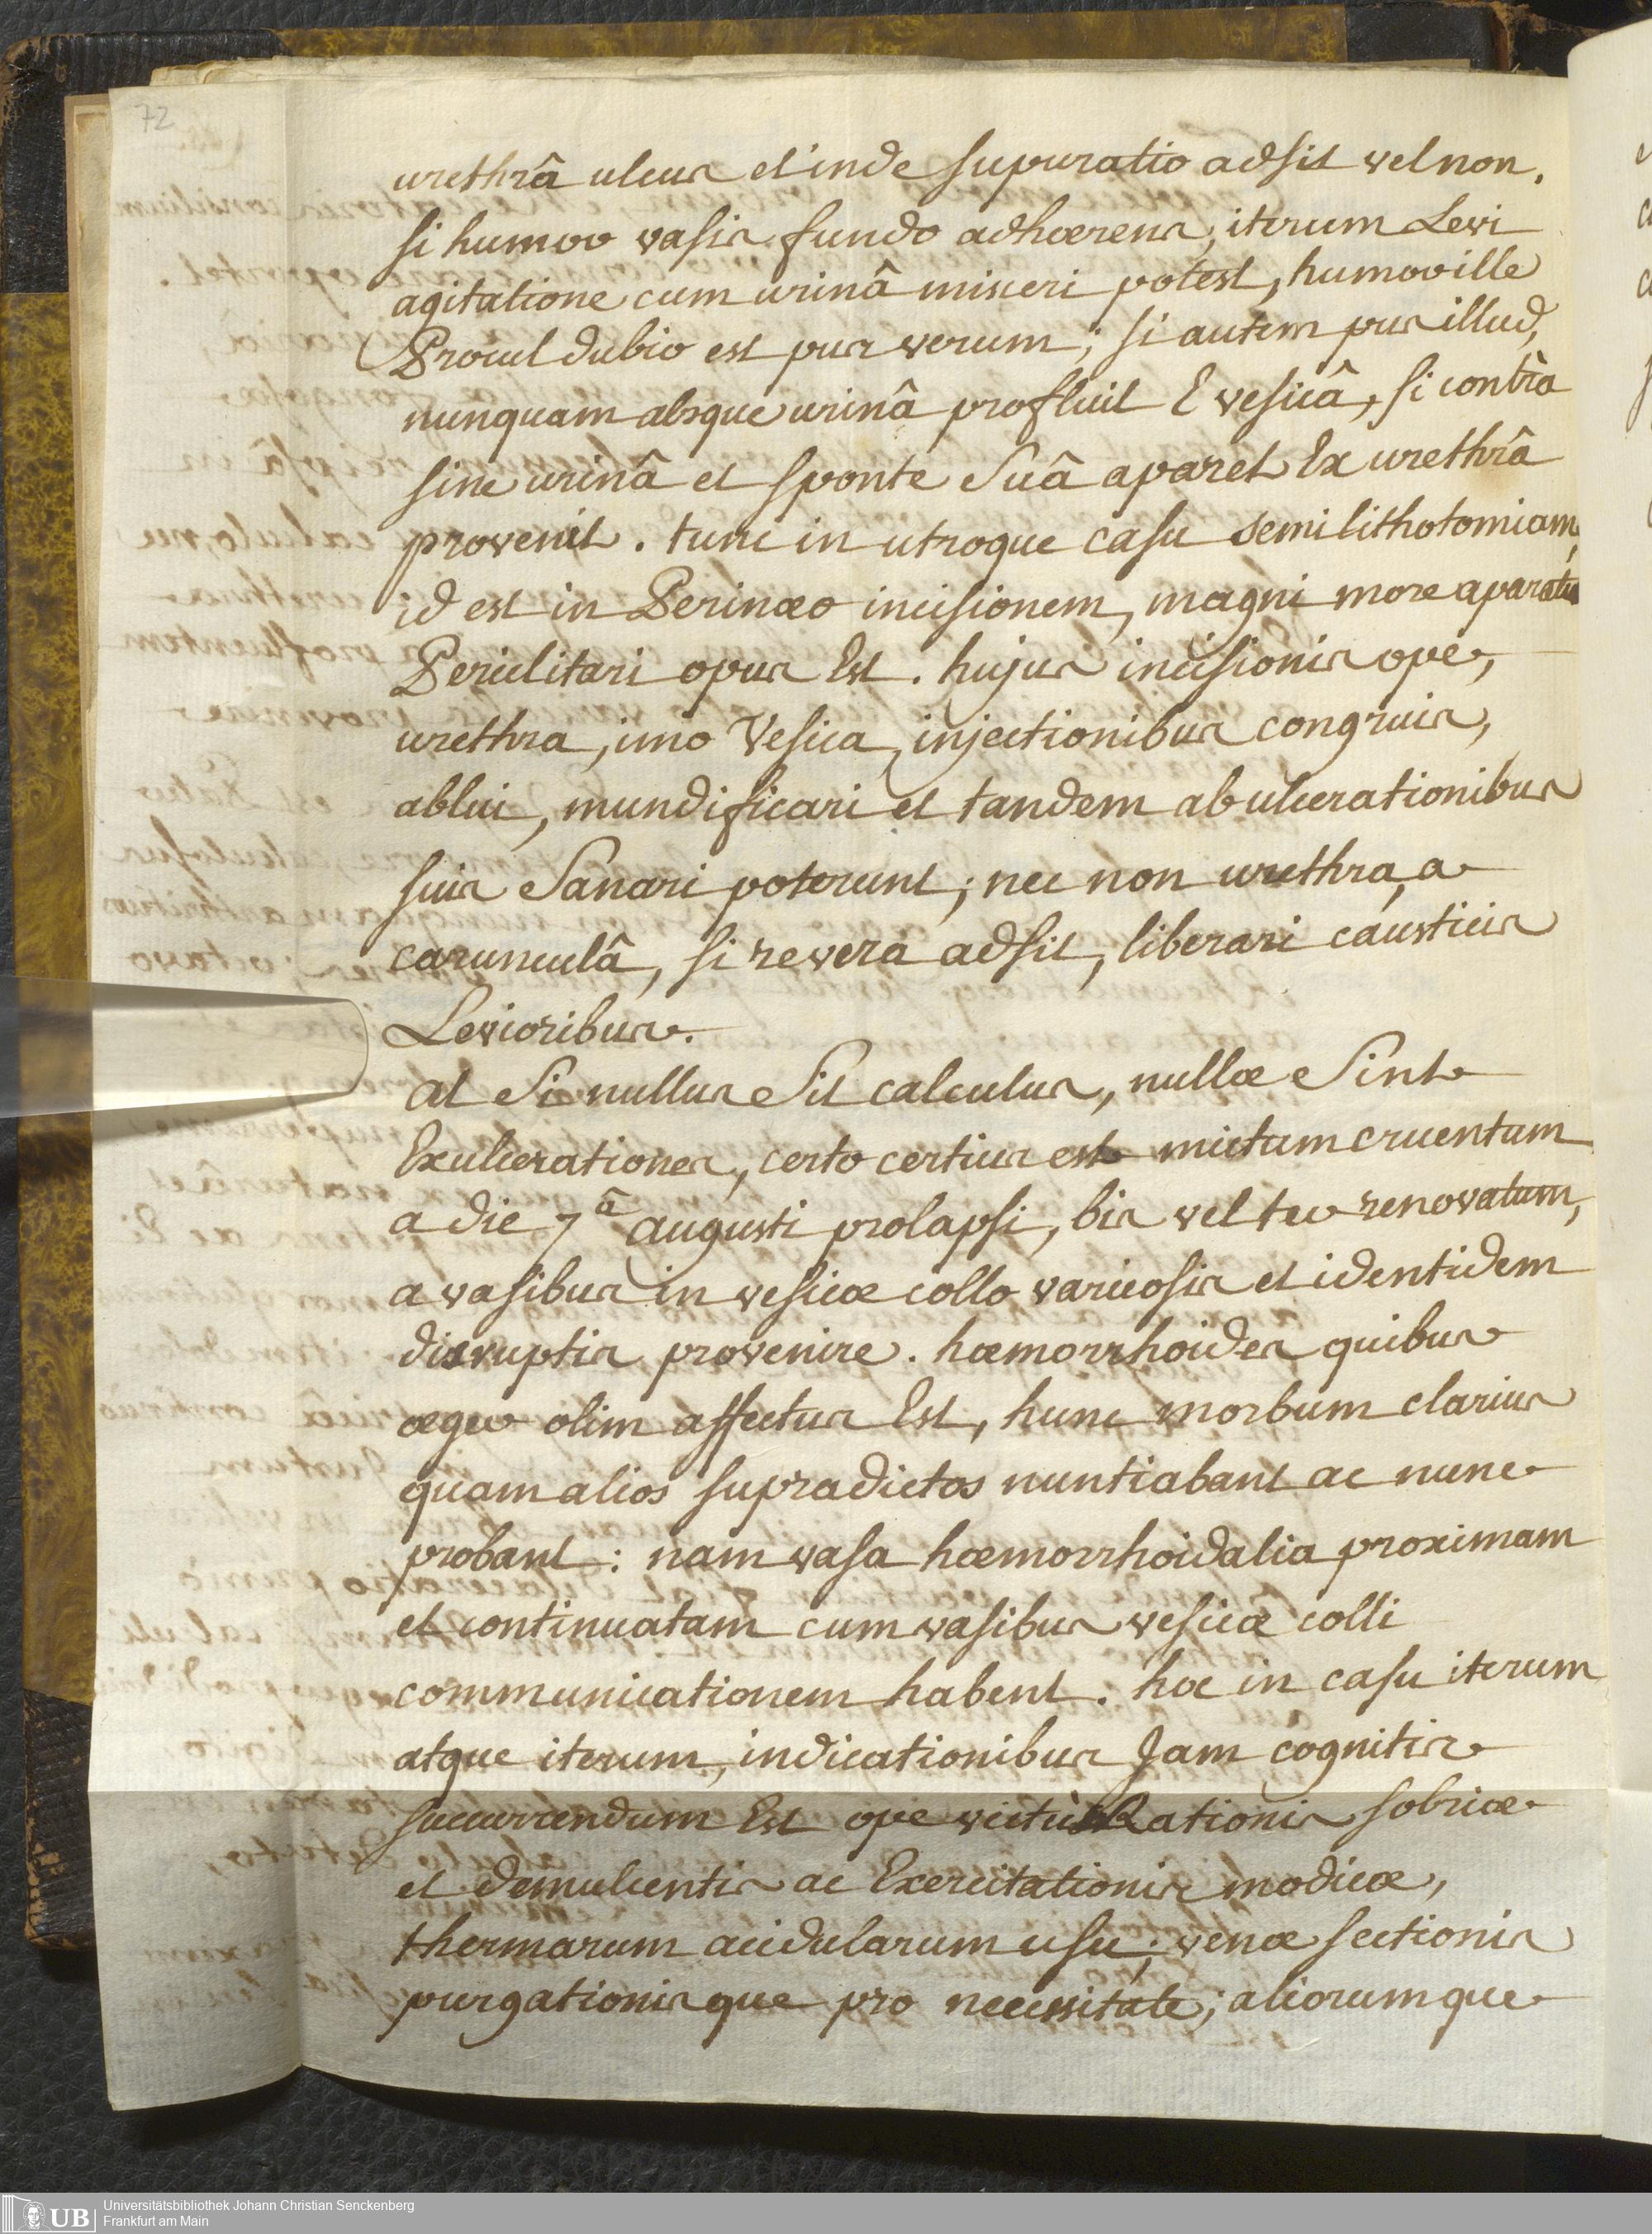 72
urethrâ ulcus et inde supuratio adsit vel non.
si humor vasis fundo adhærens, iterum Levi
agitatione cum urinâ misceri potest, humor ille
Procul dubio est pus verum; si autem pus illud,
nunquam absque urinâ profluit E vesicâ, si contrà
sine urinâ et sponte Suâ aparet Ex urethrâ
provenit. tunc in utroque casu semilithotomiam,
id est in Perinæo incisionem, magni more aparatus
Periclitari opus Est. hujus incisionis ope,
urethra, imo Vesica, injectionibus congruis,
ablui, mundificari et tandem ab ulcerationibus
suis Sanari poterunt; nec non urethra, a
carunculâ, si revera adsit, liberari causticis
Levioribus.
at Si nullus Sit calculus, nullæ Sint
Exulcerationes, certo certius est mictum cruentum
a die 7â augusti prolapsi, bis vel ter renovatum,
a vasibus in vesicæ collo varicosis et identidem
disruptis provenire. hæmorrhoides quibus
æger olim affectus Est, hunc morbum clarius
quam alios supradictos nuntiabant ac nunc
probant: nam vasa hæmorrhoidalia proximam
et continuatam cum vasibus vesicæ colli
communicationem habent. hoc in casu iterum
atque iterum, indicationibus Jam cognitis
succurrendum Est ope victûs Rationis sobriæ
et demulcentis ac Exercitationis modicæ,
thermarum acidularum usu; venæ sectionis
purgationisque pro necessitate; aliorumque
UB
Universitätsbibliothek Johann Christian Senckenberg
Frankfurt am Main